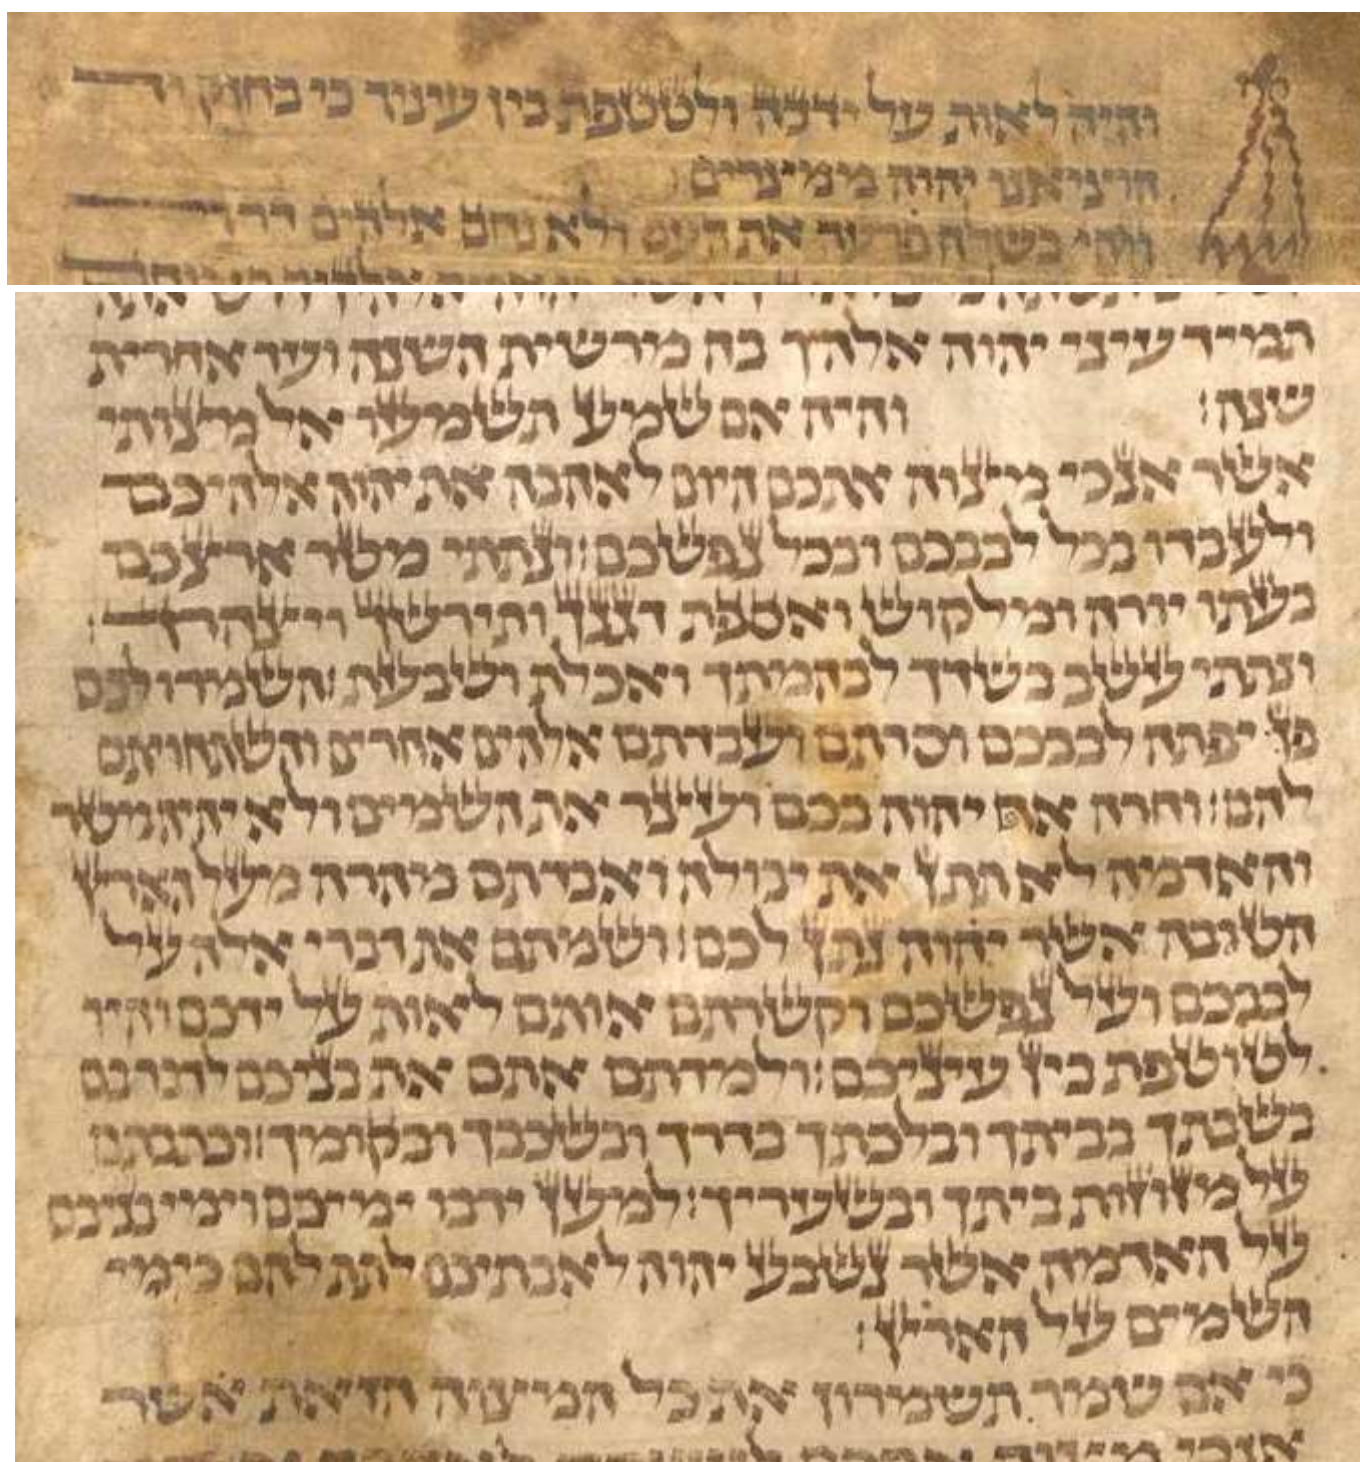 והיה לאות על ידכה ולטטפת בין עיניך כי בחזק יד
הוציאנו יהוה ממצרים
ויהי בשלח פרעה את העם ולא נחם אלהים דרך
תמיד עיני יהוה אלהיך בה מרשית השנה ועד אחרית
שנה: והיה אם שמע תשמעו אל מצותי
אשר אנכי מצוה אתכם היום לאהבה את יהוה אלהיכם
ולעבדו בכל לבבכם ובכל נפשכם: ונתתי מטר ארצכם
בעתו יורה ומלקוש ואספת דגנך ותירשך ויצהרך:
ונתתי עשב בשדך לבהמתך ואכלת ושבעת: השמרו לכם
פן יפתה לבבכם וסרתם ועבדתם אלהים אחרים והשתחויתם
להם: וחרה אף יהוה בכם ועצר את השמים ולא יהיה מטר
והאדמה לא תתן את יבולה ואבדתם מהרה מעל הארץ
הטובה אשר יהוה נתן לכם: ושמתם את דברי אלה על
לבבכם ועל נפשכם וקשרתם אותם לאות על ידכם והיו
לטוטפת בין עיניכם: ולמדתם אתם את בניכם לדבר בם
בשבתך בביתך ובלכתך בדרך ובשכבך ובקומך: וכתבתם
על מזוזות ביתך ובשעריך: למען ירבו ימיכם וימי בניכם
על האדמה אשר נשבע יהוה לאבתיכם לתת להם כימי
השמים על הארץ:
כי אם שמר תשמרון את כל המצוה הזאת אשר